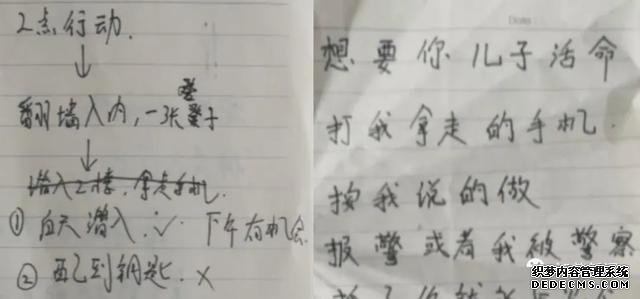 2点行动.
↓
翻墙入内,一张凳子
↓
潜入2楼.拿走手机.
① 白天潜入.✓ 下午有机会
② 配到钥匙.×
想要你儿子活命
打我拿走的手机.
按我说的做
报警或者我被警察
织梦内容管理系统
DEDECMS.COM